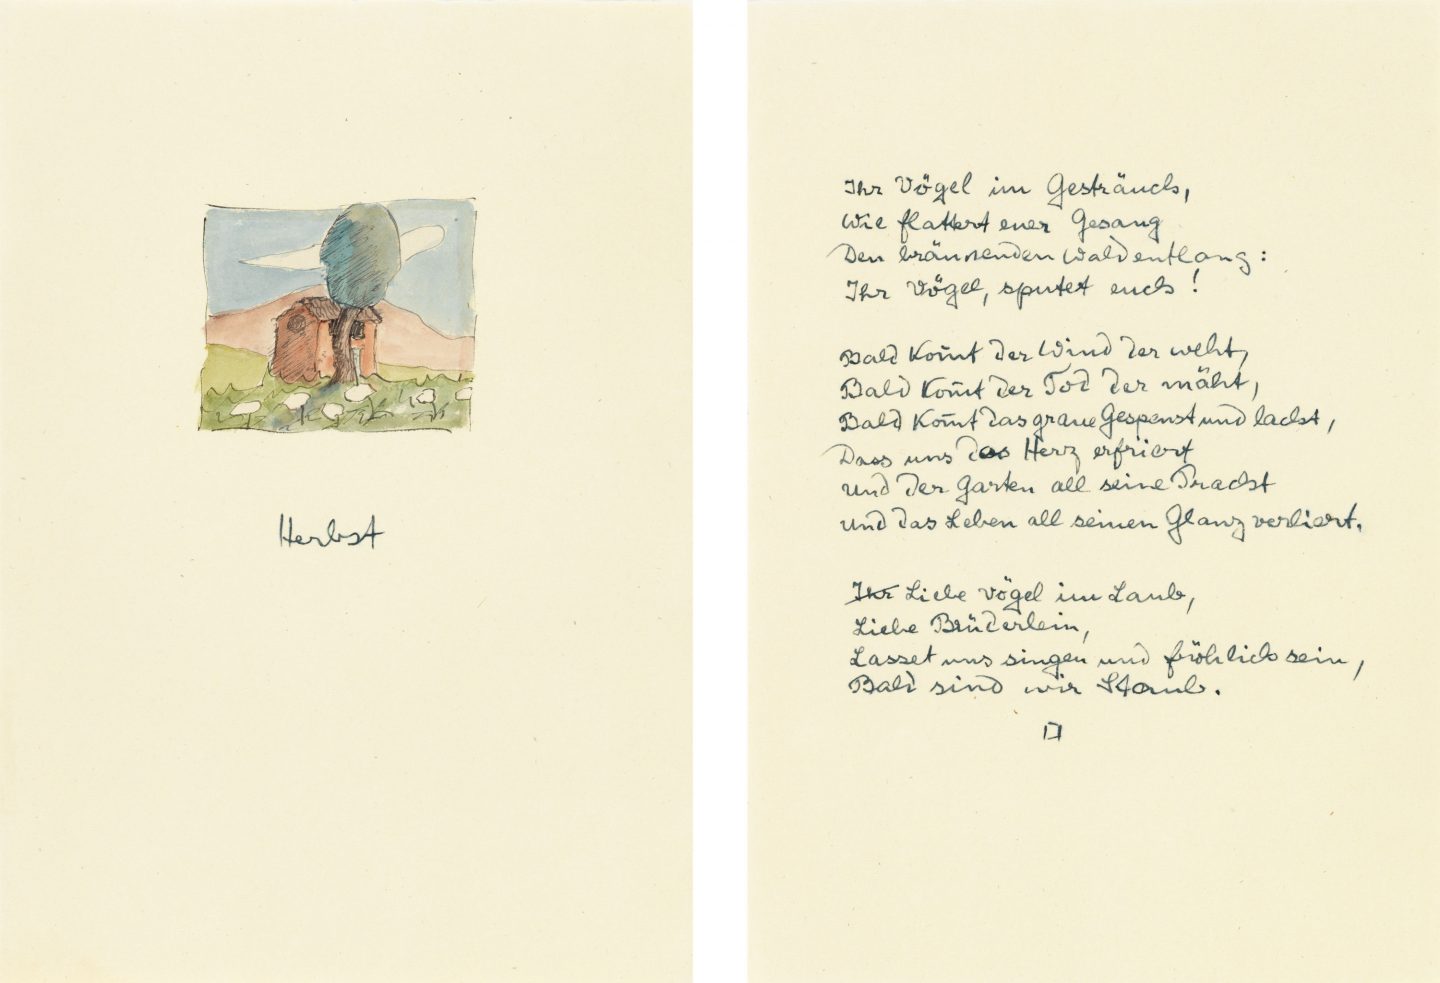 Herbst
Ihr Vögel im Gesträuch,
Wie flattert euer Gesang
Den bräunenden Wald entlang:
Ihr Vögel, sputet euch!
Bald kom̄t der Wind der weht,
Bald kom̄t der Tod der mäht,
Bald kom̄t das graue Gespenst und lacht,
Dass uns das Herz erfriert
Und der Garten all seine Pracht
Und das Leben all seinen Glanz verliert.
Ihr Liebe Vögel im Laub,
Liebe Brüderlein,
Lasset uns singen und fröhlich sein,
Bald sind wir Staub.